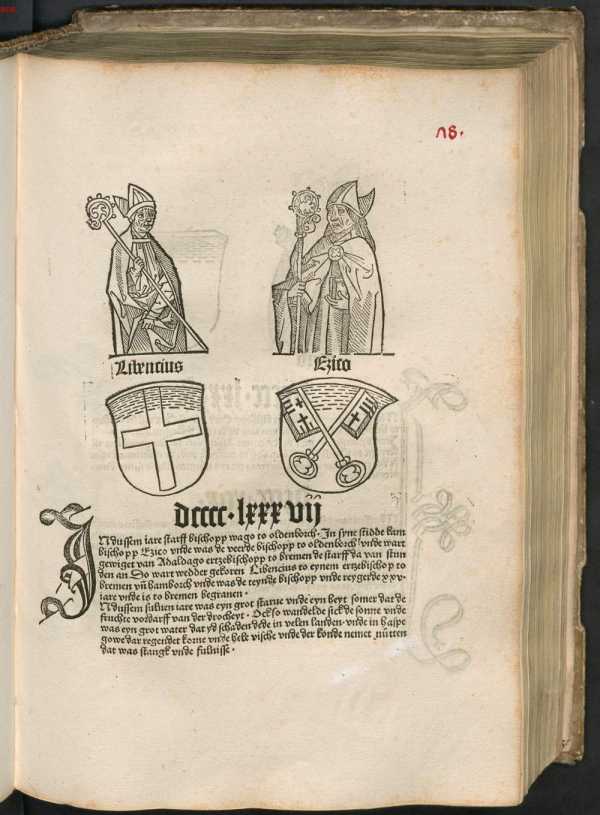 18.
Libencius
Ezico
dcccc·lxxx vij
INdussem iare starff bischopp wago to oldenborch· In syne stidde kam
bischopp Ezico vnde was de veerde bischopp to oldenborch/ vnde wart
gewiget van Adaldago ertzebischopp to bremen de starff da van stun
den an Do wart wedder gekoren Libencius to eynem ertzebischop to
bremen vñ hamborch vnde was de teynde bischopp vnde regerde xxv·
iare vnde is to bremen begrauen·
INdussem suluen iare was eyn grot starue vnde eyn heyt somer dat de
fruchte vordarff van der drocheyt· Ock so wandelde sick de sonne vnde
was eyn grot water dat yd schaden dede in velen landen· vnde in haspe
gowe dar regendet korne vnde hele vische vnde der konde nemet nütten
dat was stangk vnde fulnisse·